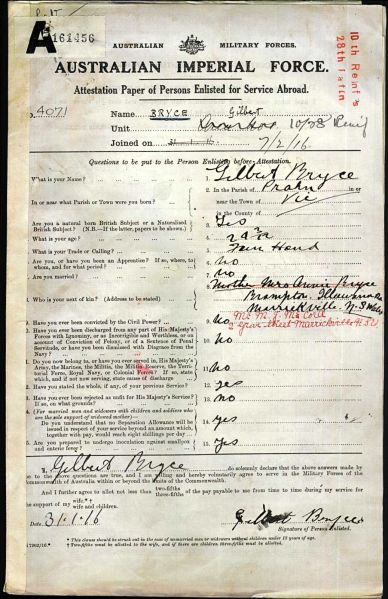 A 161456
AUSTRALIAN MILITARY FORCES.
AUSTRALIAN IMPERIAL FORCE.
Attestation Paper of Persons Enlisted for Service Abroad.
10th Reinf's
28th
4071
Name BRYCE Gilbert
Unit 10/28 Reinf
Joined on 31.1.16 7/2/16
Questions to be put to the Person Enlisting before Attestation.
What is your Name? Gilbert Bryce
In or near what Parish or Town were you born? 2. In the Parish of Prahran in or
near the Town of Vic
in the County of
Are you a natural born British Subject or a Naturalised 3. Yes
British Subject? (N.B.—If the latter, papers to be shown).
What is your age? 4.
What is your Trade or Calling? 5. Hand
Are you, or have you been an Apprentice? If so, where, to 6. No
whom, and for what period?
Are you married? 7. No
Who is your next of kin? (Address to be stated) 8. Mother Mrs Annie Bryce
Brampton
Marrickville N.S Wales
Street Marrickville NSW
Have you ever been convicted by the Civil Power? 9. No
Have you ever been discharged from any part of His Majesty's 10. No
Forces with Ignominy, or as Incorrigible and Worthless, or on
account of Conviction of Felony, or of a Sentence of Penal
Servitude, or have you been dismissed with Disgrace from the
Navy?
Do you now belong to, or have you ever served in, His Majesty's 11. No
Army, the Marines, the Militia, the Militia Reserve, the Territorial
Force, Royal Navy, or Colonial Forces? If so, state
which, and if not now serving, state cause of discharge
Have you stated the whole, if any, of your previous Service? 12. yes
Have you ever been rejected as unfit for His Majesty's Service? 13. no
If so, on what grounds?
(For married men and widowers with children and soldiers who
are the sole support of widowed mother)—
Do you understand that no Separation Allowance will be 14. yes
issued in respect of your service beyond an amount which,
together with pay, would reach eight shillings per day?
Are you prepared to undergo inoculation against smallpox 15. Yes
and enteric fever?
I, Gilbert Bryce, do solemnly declare that the above answers made by
me to the above questions are true, and I am willing and hereby voluntarily agree to serve in the Military Forces of the
Commonwealth of Australia within or beyond the limits of the Commonwealth.
And I further agree to allot not less than two-fifths of the pay payable to me from time to time during my service for
three-fifths
the support of my wife.*†
wife and children.
Date 31.1.16 Gilbert Bryce
Signature of Person Enlisted.
* This clause should be struck out in the case of unmarried men or widowers without children under 18 years of age.
† Two-fifths must be allotted to the wife, and if there are children three-fifths must be allotted.